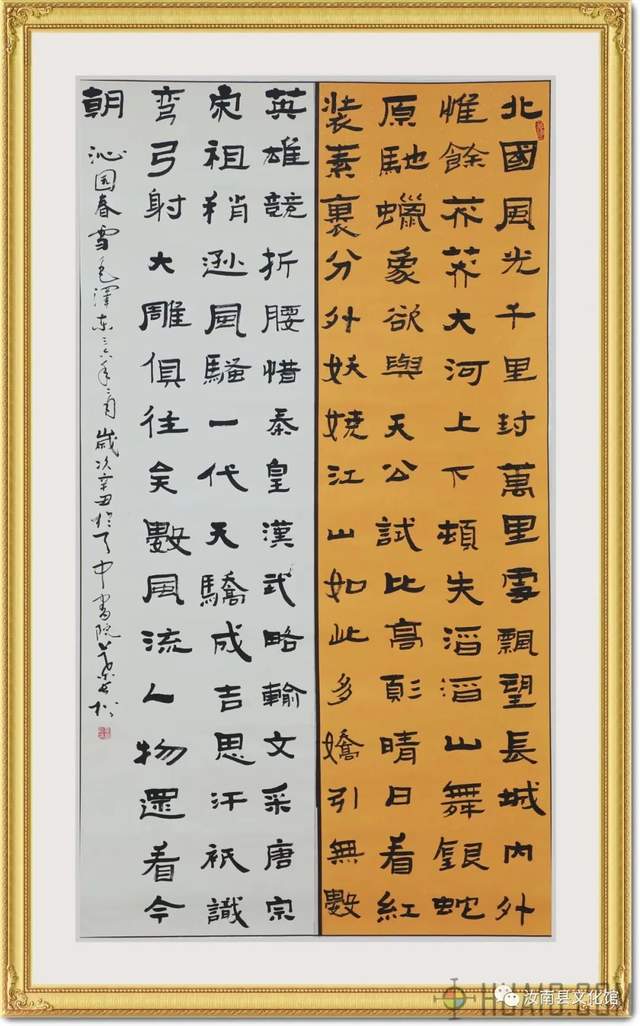 北國風光千里封萬里雪飄望長城内外
惟餘莽莽大河上下頓失滔滔山舞銀蛇
原馳蠟象欲與天公試比高須晴日看紅
装素裹分外妖嬈江山如此多嬌引無數
英雄競折腰惜秦皇漢武略輸文采唐宗
宋祖稍遜風騷一代天驕成吉思汗祇識
弯弓射大雕俱往矣數風流人物還看今
朝 沁园春雪毛澤东三六年二月歲次辛丑於天中書院
汝南县文化馆